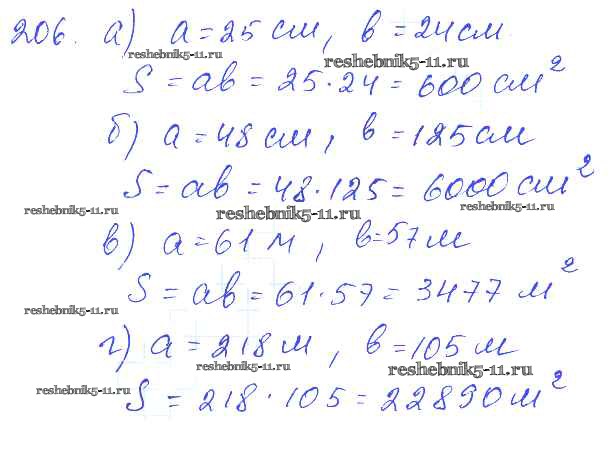 206. а) a = 25 см, в = 24 см.
reshebnik5-11.ru reshebnik5-11.ru
S = ав = 25 · 24 = 600 см²
б) а = 48 см, в = 125 см
S = ав = 48 · 125 = 6000 см²
reshebnik5-11.ru reshebnik5-11.ru reshebnik5-11.ru
в) а = 61 м, в = 57 м
S = ав = 61 · 57 = 3477 м²
reshebnik5-11.ru
г) а = 218 м, в = 105 м
reshebnik5-11.ru reshebnik5-11.ru
S = 218 · 105 = 22890 м²
reshebnik5-11.ru